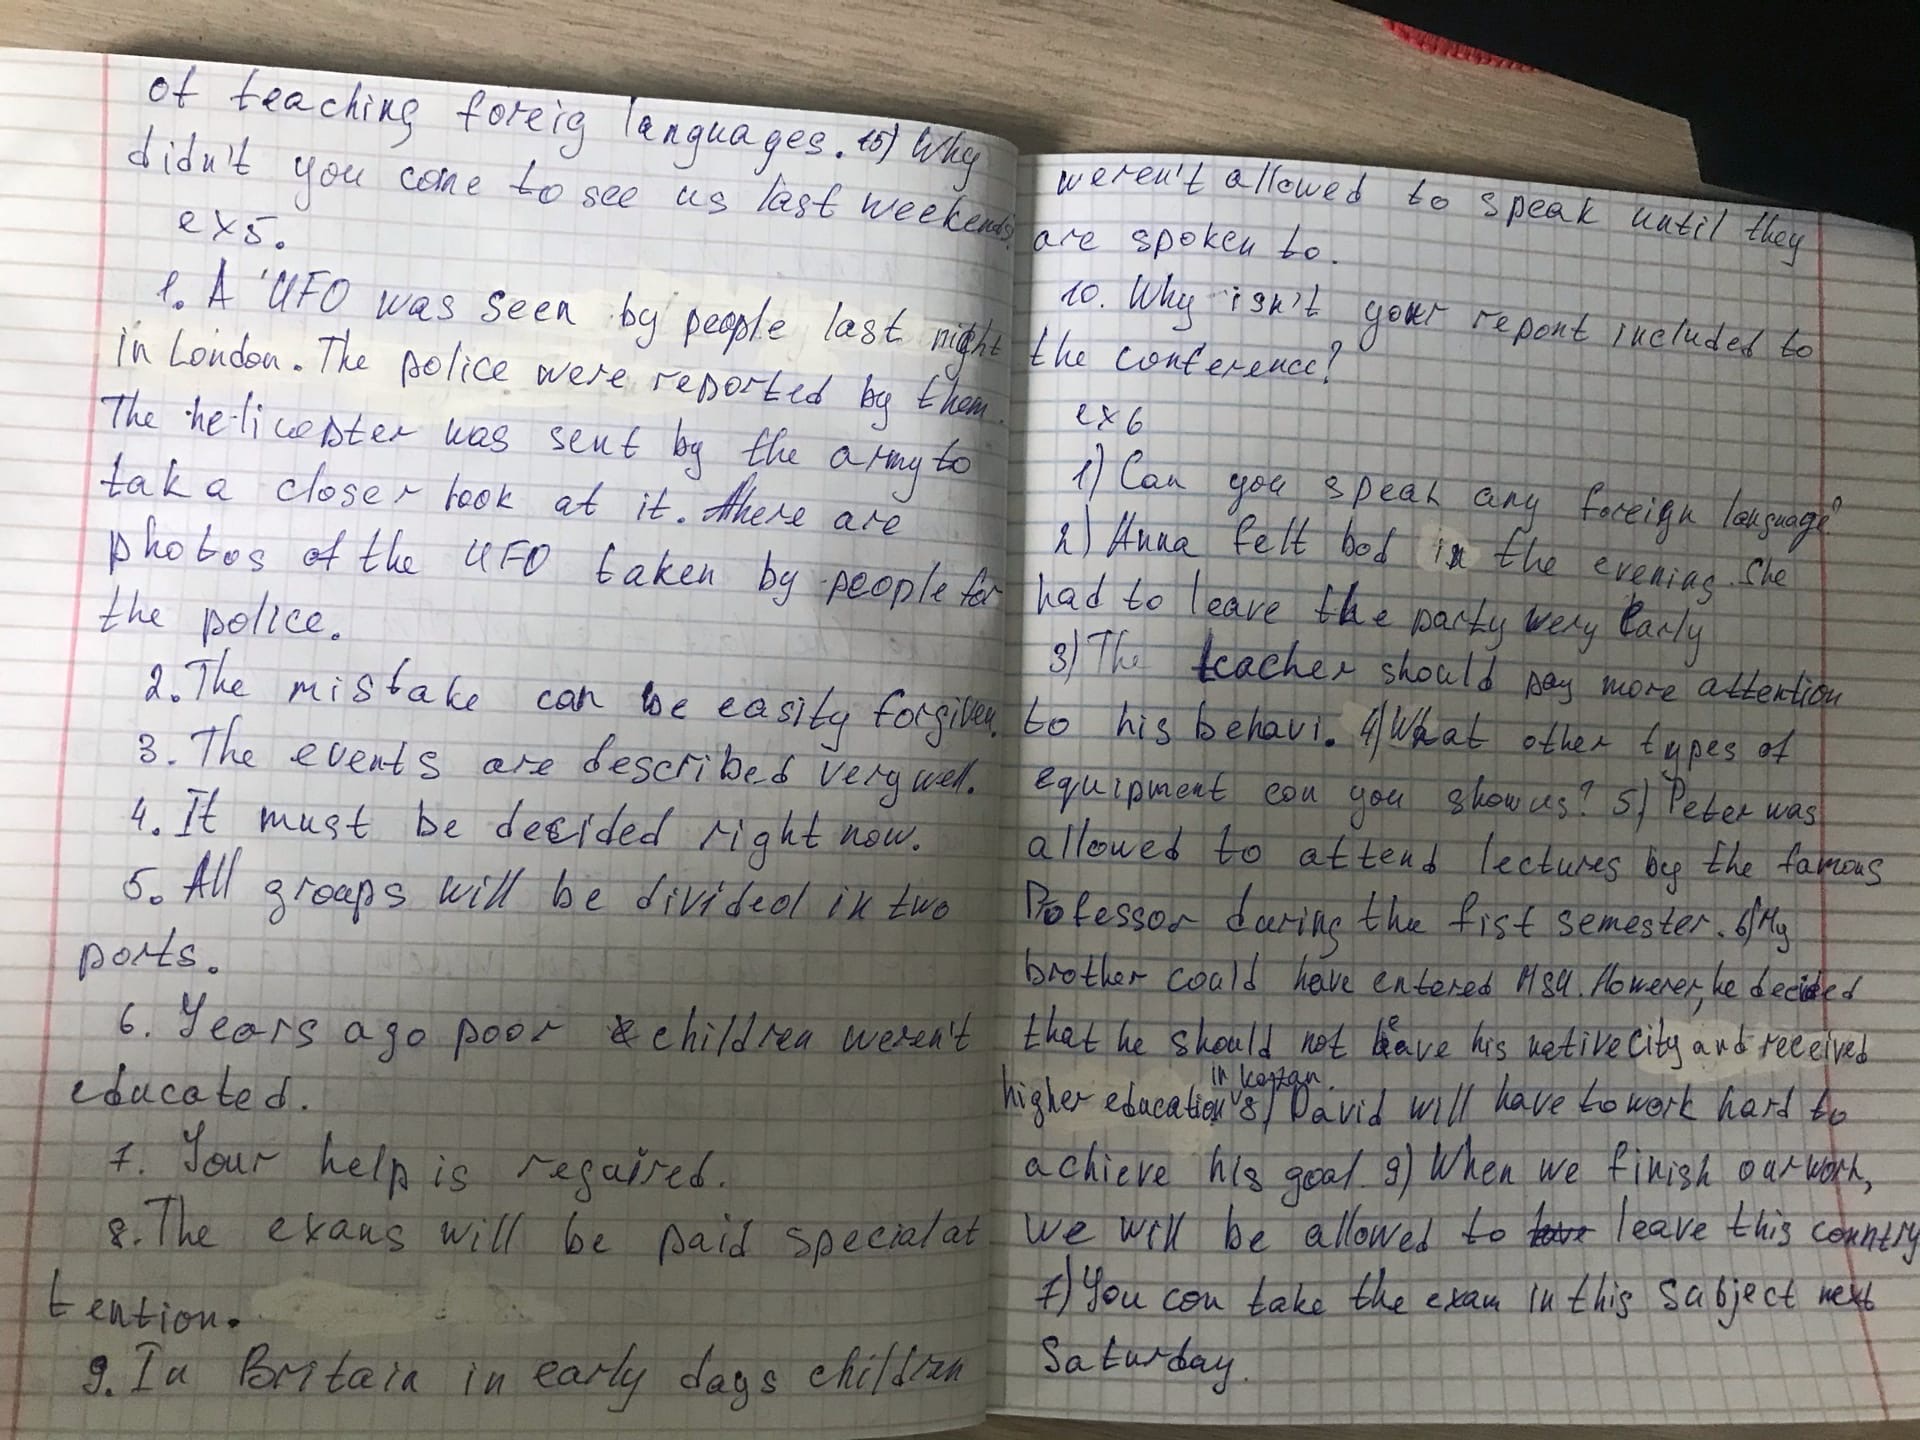 of teaching foreig languages. 15) Why
didn't you come to see us last weekends?
ex5.
1. A UFO was seen by people last night
in London. The police were reported by them.
The helicopter was sent by the army to
tak a closer look at it. There are
photos of the UFO taken by people for
the police.
2. The mistake can be easity forgiven.
3. The events are described very well.
4. It must be decided right now.
5. All groups will be divided in two
ports.
6. Years ago poor children weren't
educated.
7. Your help is reguired.
8. The exams will be paid special at
tention.
9. In Britain in early days children
weren't allowed to speak until they
are spoken to.
10. Why isn't your repont included to
the conference?
ex6
1) Can you speak any foreign language?
2) Anna felt bad in the evening. She
had to leave the party very early
3) The teacher should pay more attention
to his behavi. 4) What other types of
equipment can you show us? 5) Peter was
allowed to attend lectures by the famous
Professor during the fist semester. 6) My
brother could have entered MSU. However, he decided
that he should not leave his native city and received
higher education in Kazan. 8) David will have to work hard to
achieve his goal. 9) When we finish our work,
we will be allowed to leave this country
7) You can take the exam in this subject next
Saturday.